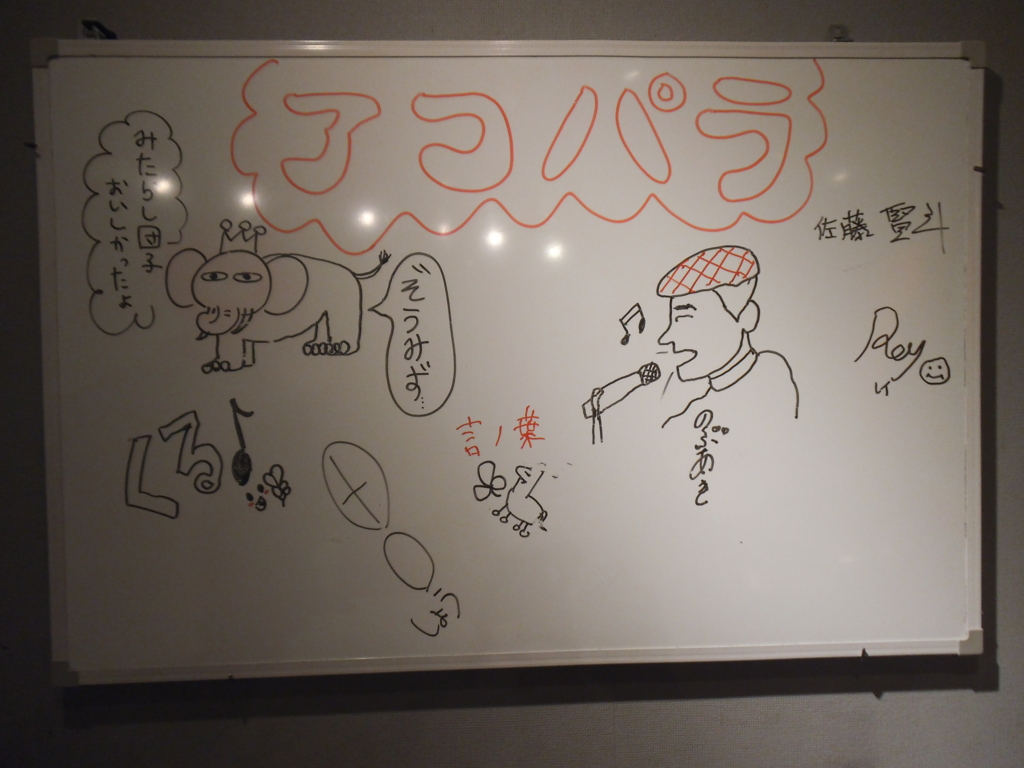 アコパラ
みたらし団子
おいしかったよ
ぞうみず…
佐藤 賢斗
Rey
のぶあき
言ノ葉
くる